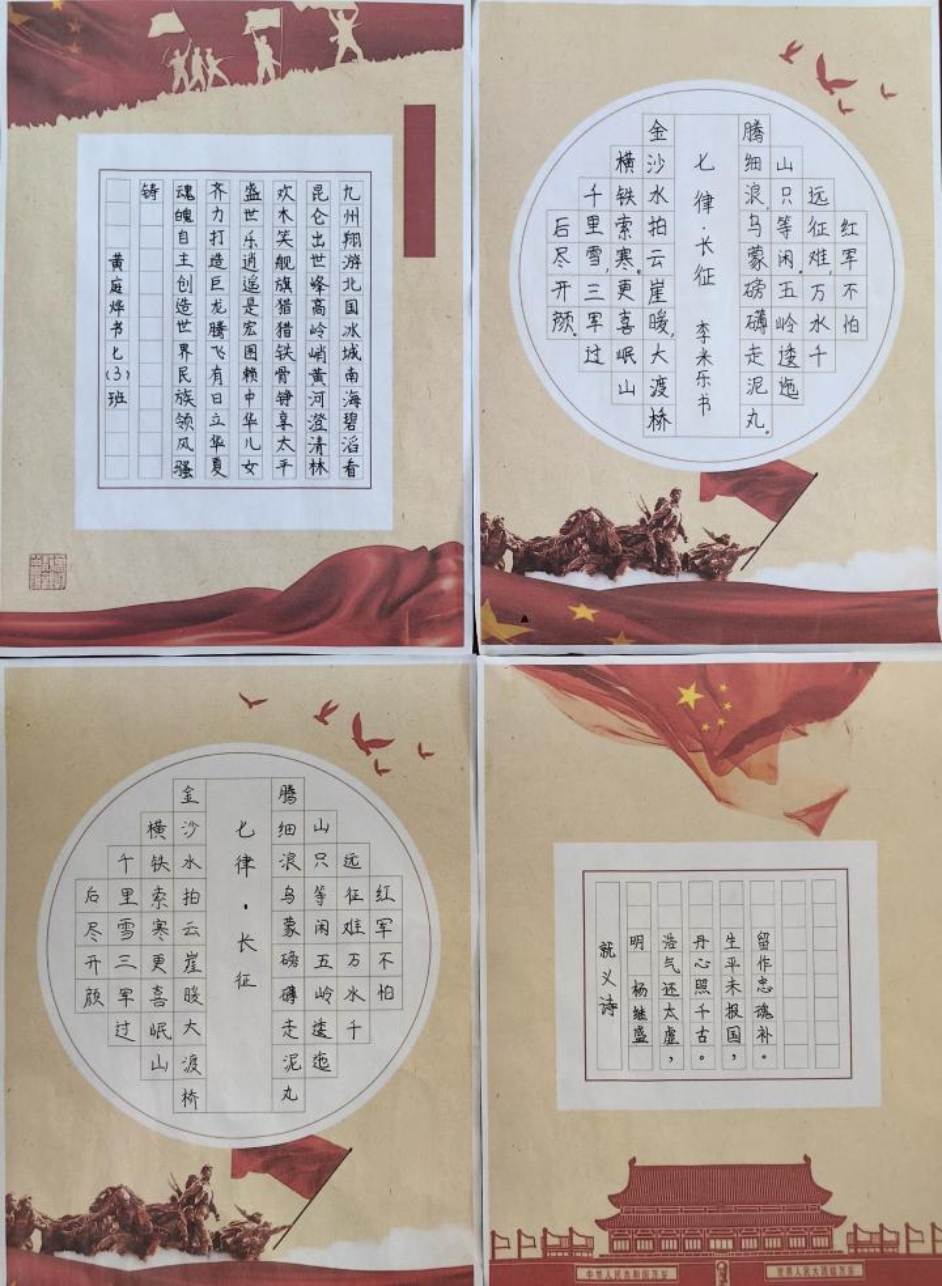 九州翔游北国冰城南海碧滔看
昆仑出世峰高岭峭黄河澄清林
欢木笑舰旗猎猎铁骨铮享太平
盛世乐逍遥是宏图赖中华儿女
齐力打造巨龙腾飞有日立华夏
魂魄自主创造世界民族领风骚
铸
黄庭烨书七(3)班
红军不怕
远征难,万水千
山只等闲。五岭逶迤
腾细浪,乌蒙磅礴走泥丸。
七律·长征 李米乐书
金沙水拍云崖暖,大渡桥
横铁索寒。更喜岷山
千里雪,三军过
后尽开颜。
红军不怕
远征难万水千
山只等闲五岭逶迤
腾细浪乌蒙磅礴走泥丸
七律·长征
金沙水拍云崖暖大渡桥
横铁索寒更喜岷山
千里雪三军过
后尽开颜
就义诗
明 杨继盛
浩气还太虚,
丹心照千古。
生平未报国,
留作忠魂补。
中华人民共和国万岁
世界人民大团结万岁